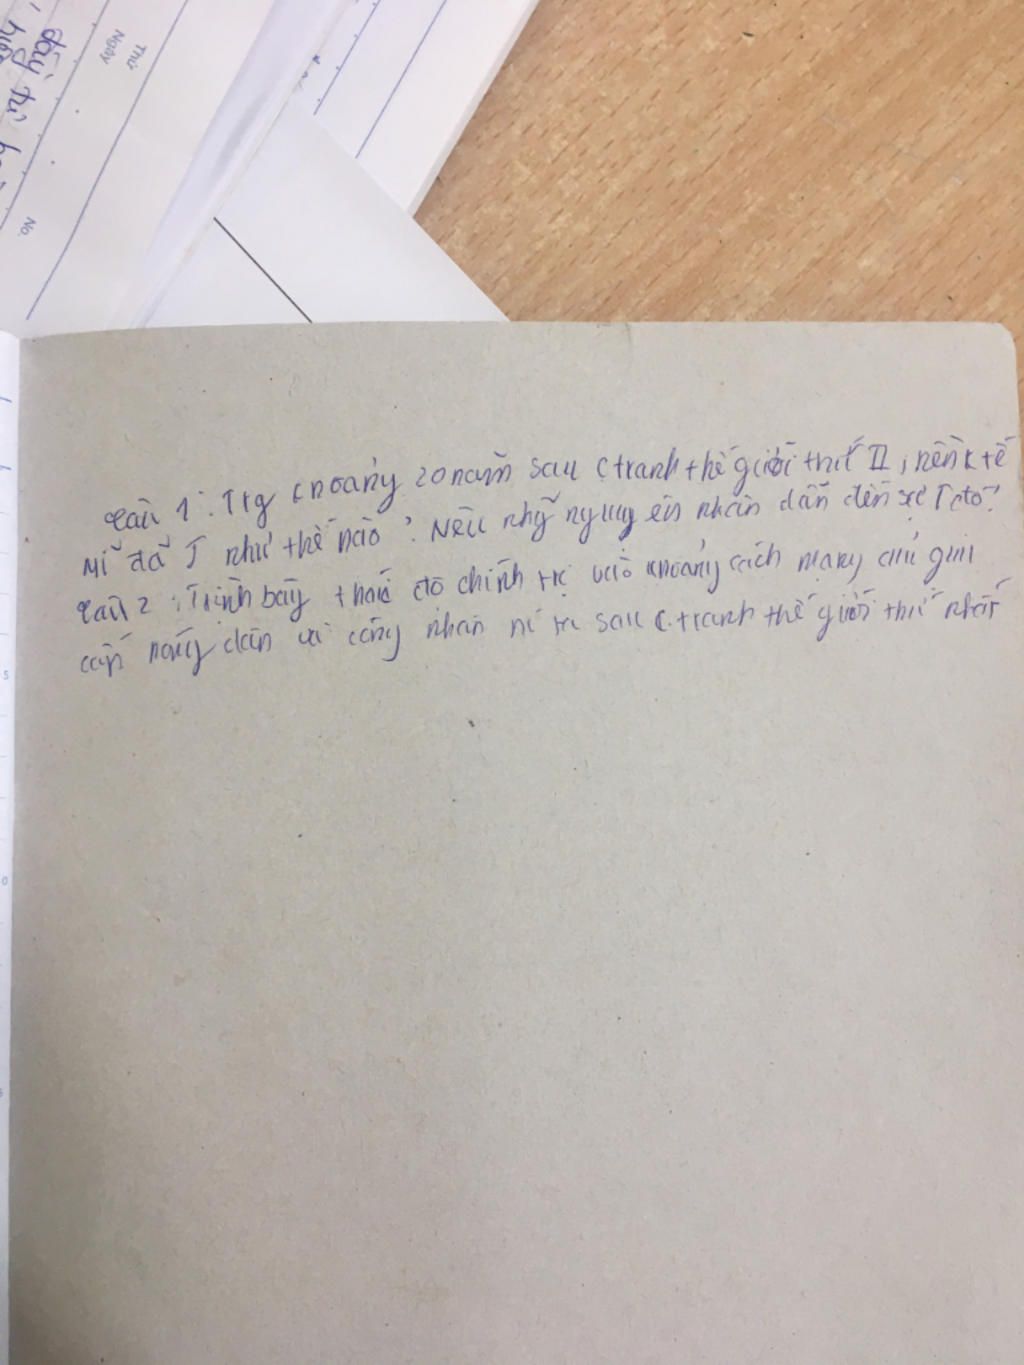 đầy từ
Thứ
Ngày
No.
Câu 1: Trg khoảng 20 năm sau c tranh thế giới thứ II, nền k tế
Mĩ đã T như thế nào? Nêu nhữ nguyên nhân dẫn đến sự T đó?
Câu 2: Trình bày thái độ chính trị và khoảng cách mạng của giai
cấp nông dân và công nhân sau c.tranh thế giới thứ nhất